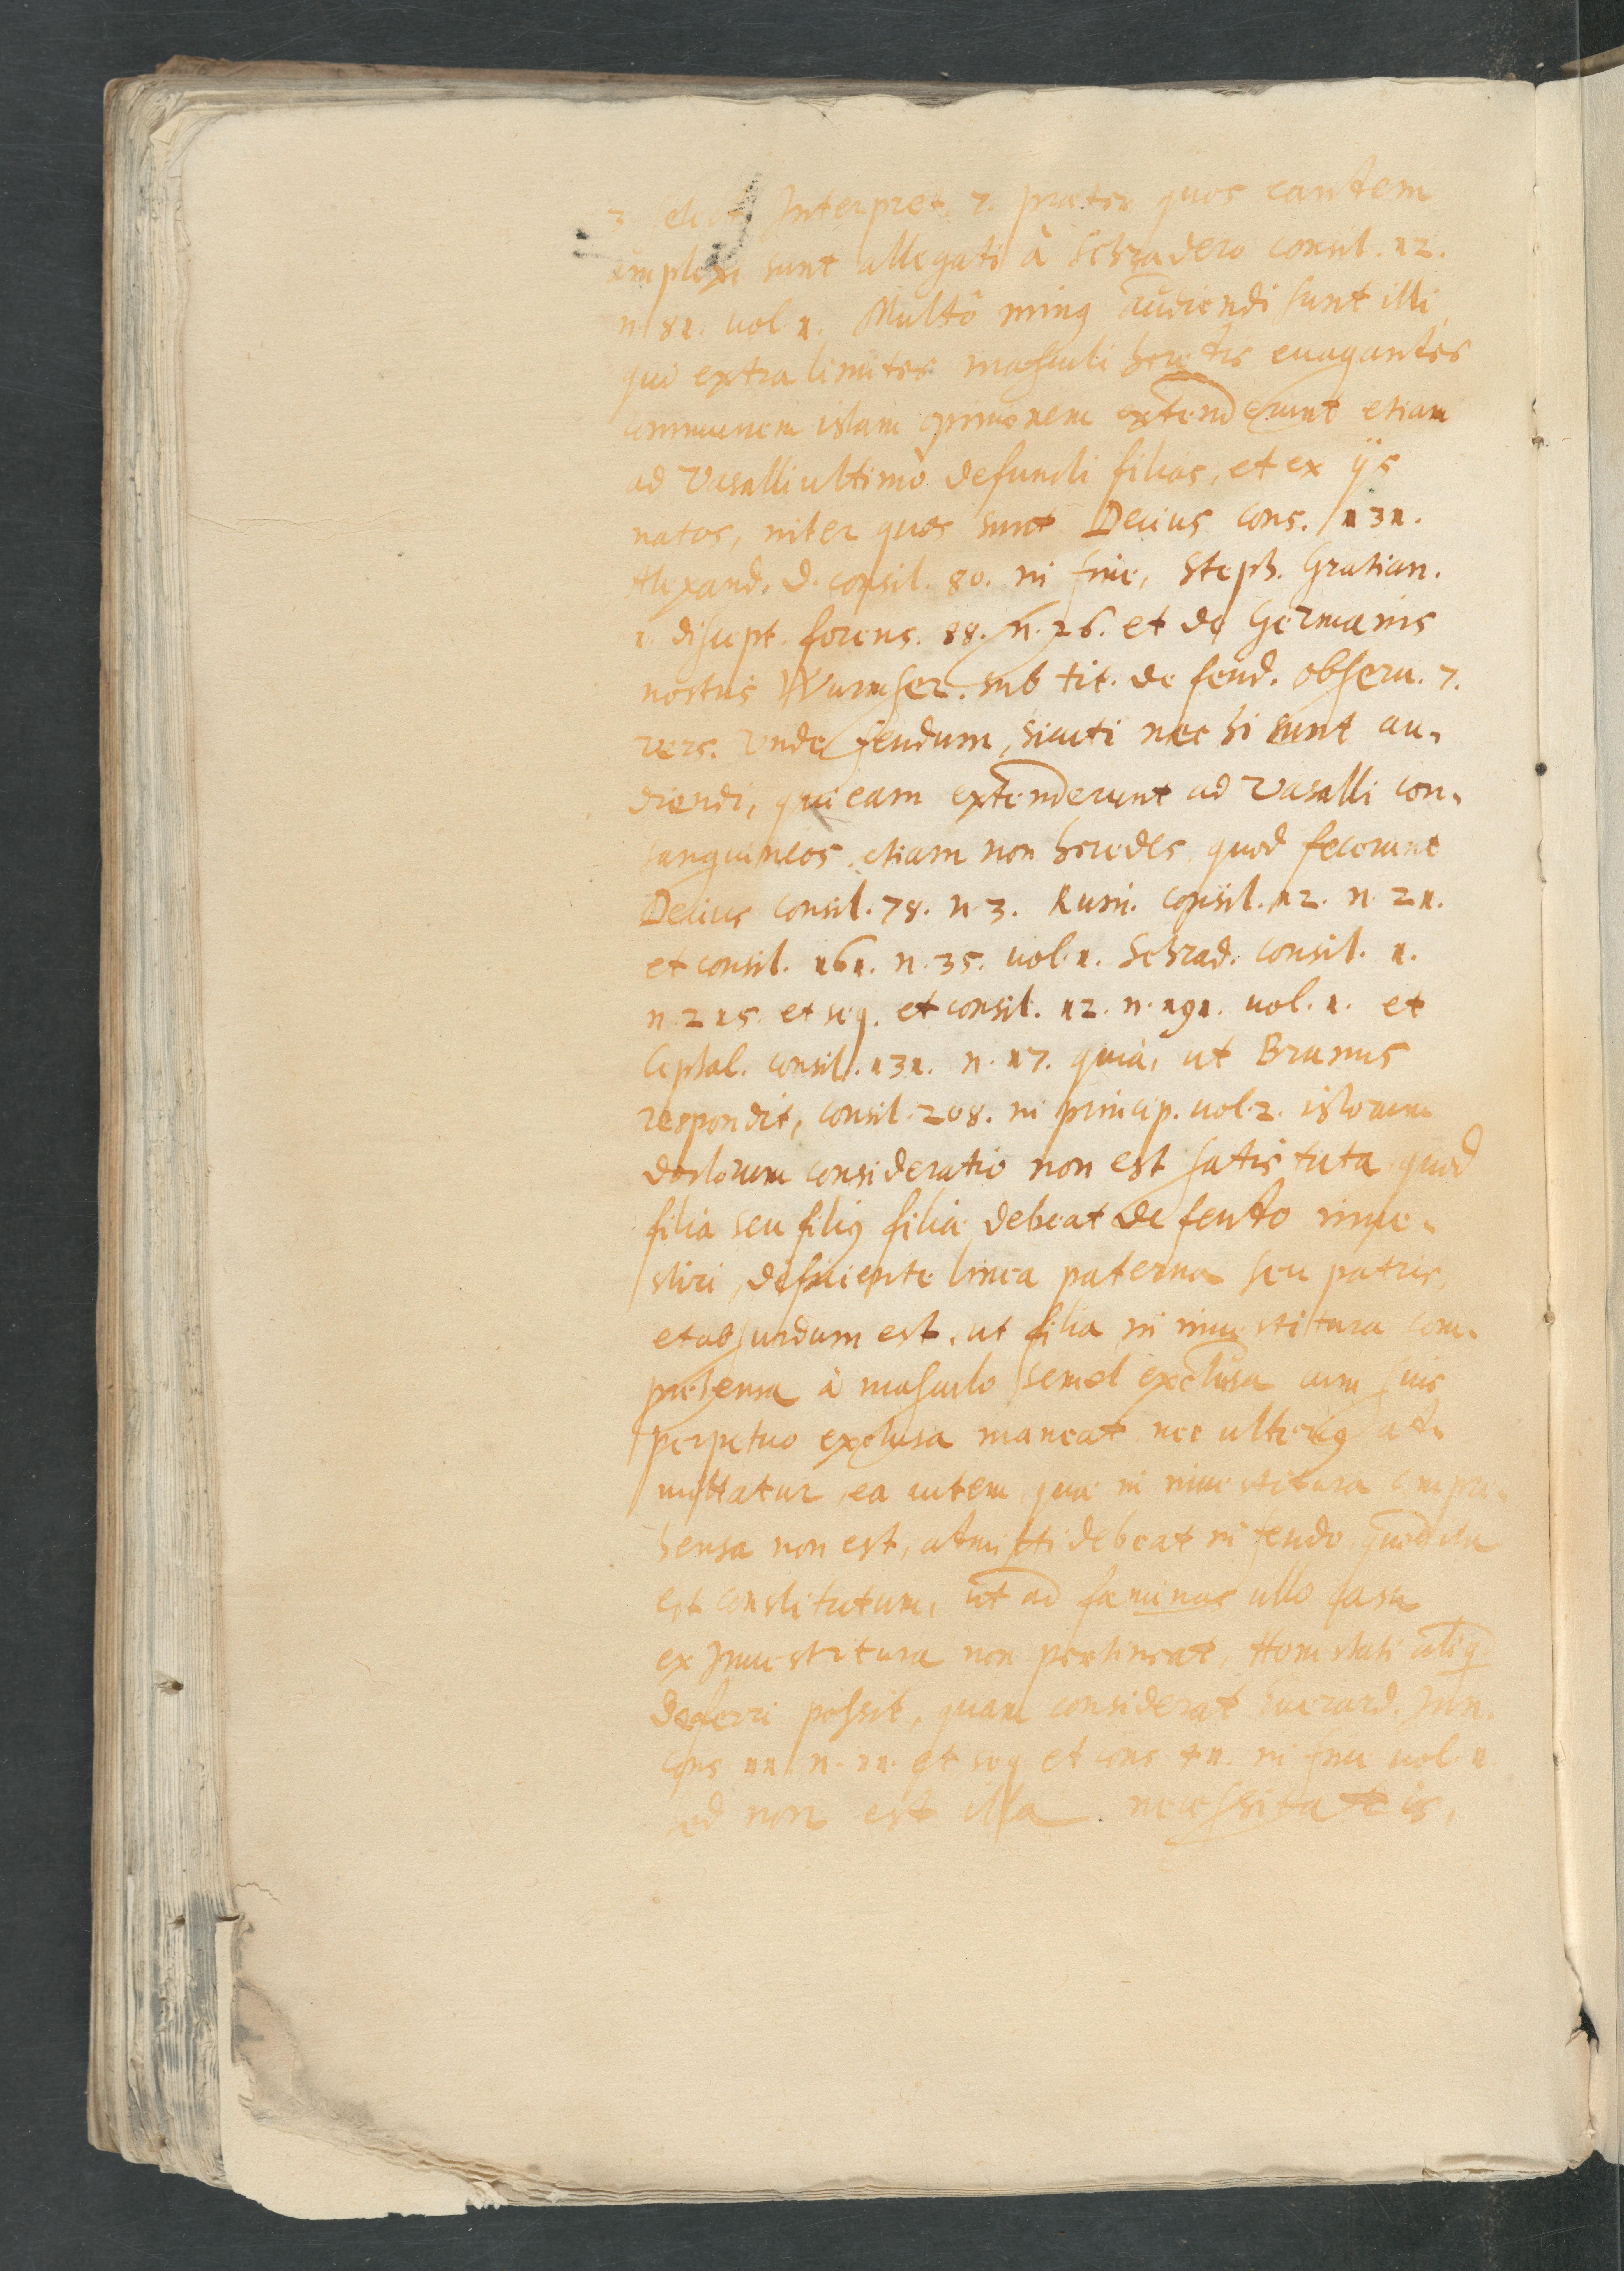 3 select Interpret. 7. præter quos eandem
amplexi sunt allegati â Schradero consil. 12.
n. 81. vol. 1. Multò minꝰ audiendi sunt illi,
qui extra limites masculi heredis euagantes
communem istam opinionem extenderunt etiam
ad Vasalli ultimò defuncti filias, et ex ijs
natos, inter quos sunt Decius cons. 131.
Alexand. d. consil. 80. in fine, Steph. Gratian.
1. discept. forens. 88. n. 26. et de Germanis
nostris Wurmser. sub tit. de feud. obseru. 7.
vers. Unde feudum, sicuti nec hi sunt au-
diendi, qui eam extenderunt ad Vasalli con-
sanguineos etiam non heredes, quod fecerunt
Decius consil. 78. n. 3. Ruin. consil. 12. n. 21.
et consil. 161. n. 35. vol. 1. Schrad. consil. 1.
n. 215. et seq. et consil. 12. n. 191. vol. 1. et
Cephal. consil. 131. n. 17. quia, ut Brunus
respondit, consil. 208. in princip. vol. 2. istorum
doctorum consideratio non est satis tuta, quod
filia seu filiꝰ filiæ debeat de feudo inue-
stiri, deficiente linea paterna seu patris,
et absurdum est, ut filia in inuestitura com-
prehensa à masculo semel exclusa cum suis
perpetuo exclusa maneat nec ulteriꝰ ad-
mittatur, ea autem, quæ in inuestitura compre-
hensa non est, admitti debeat in feudo, quod ita
est constitutum, ut ad fæminas ullo casu
ex Inuestitura non pertineat, Honestati
deferri possit, quam considerat Euerard. Jun.
cons 11 n. 11. et seq et cons in fine vol. 1
ed non est illa necessitatis,